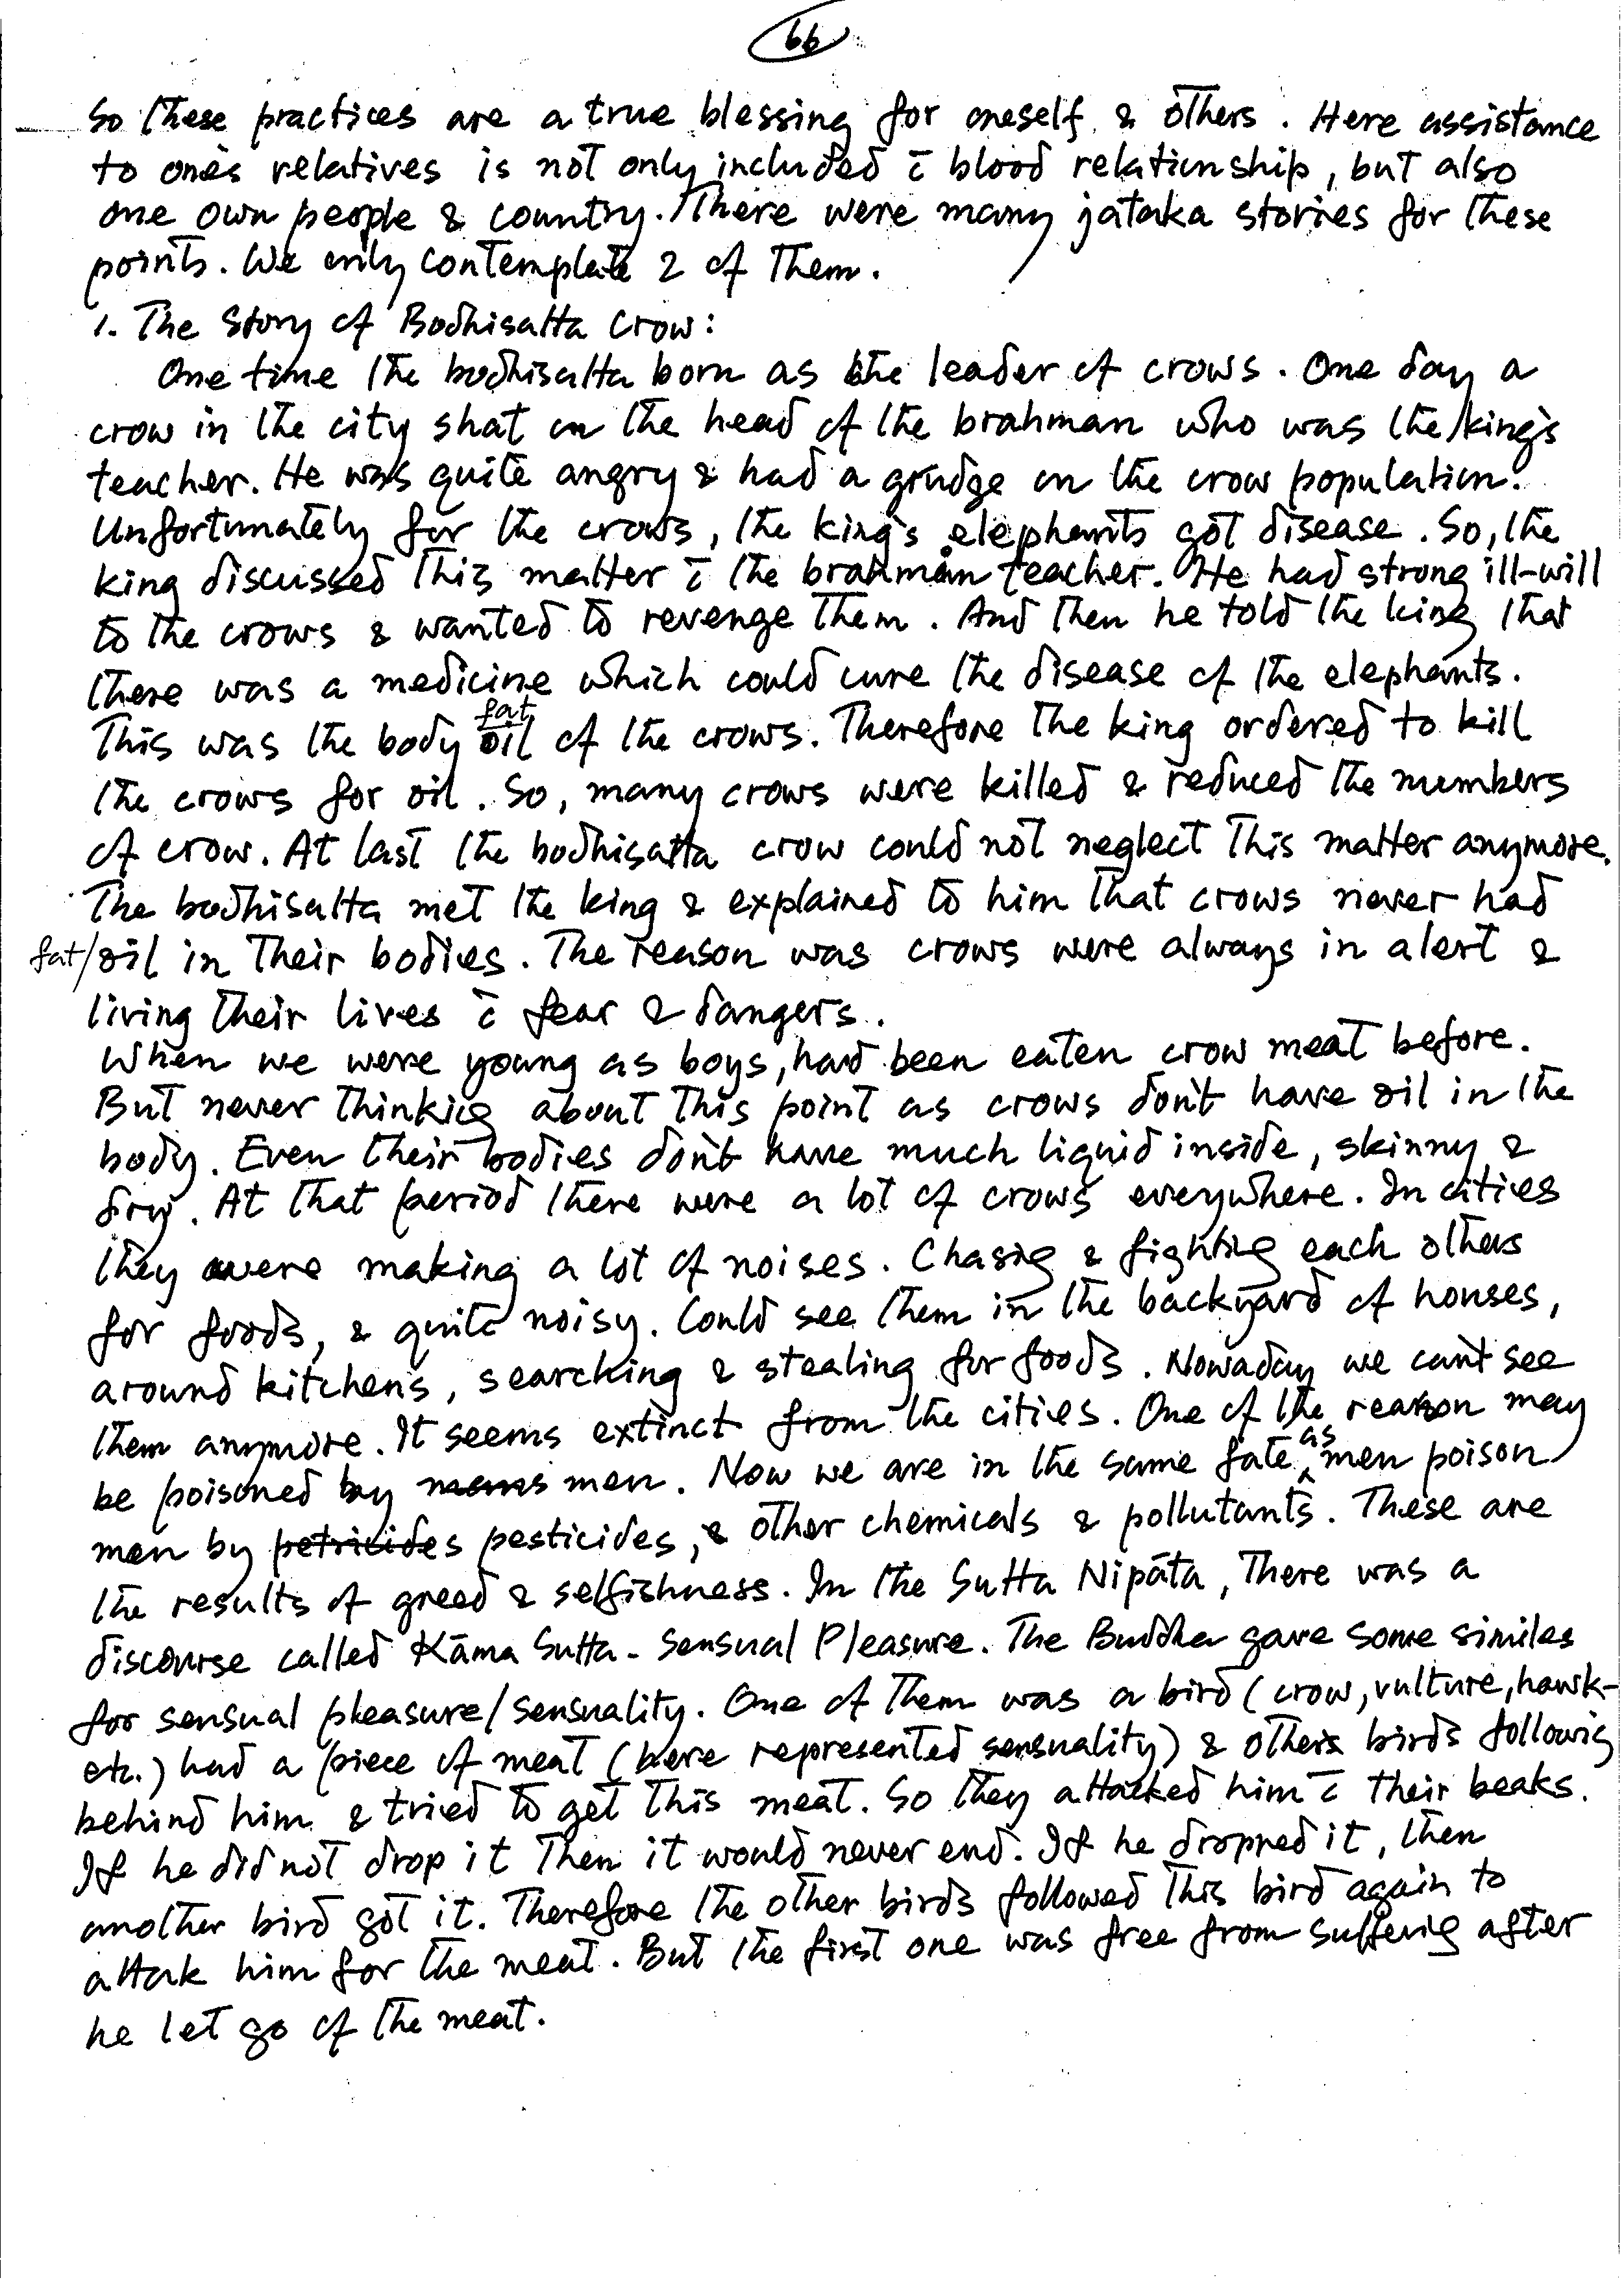 66
So these practices are a true blessing for oneself & others. Here assistance
to one's relatives is not only included c̄ blood relationship, but also
one own people & country. There were many jataka stories for these
points. We only contemplate 2 of them.
1. The Story of Bodhisatta Crow:
One time the bodhisatta born as the leader of crows. One day a
crow in the city shat on the head of the brahman who was the king's
teacher. He was quite angry & had a grudge on the crow population.
Unfortunately for the crows, the king's elephants got disease. So, the
king discussed this matter c̄ the brahman teacher. He had strong ill-will
to the crows & wanted to revenge them. And then he told the king that
there was a medicine which could cure the disease of the elephants.
fat
This was the body oil of the crows. Therefore the king ordered to kill
the crows for oil. So, many crows were killed & reduced the numbers
of crow. At last the bodhisatta crow could not neglect this matter anymore.
The bodhisatta met the king & explained to him that crows never had
fat/oil in their bodies. The reason was crows were always in alert &
living their lives c̄ fear & dangers.
When we were young as boys, had been eaten crow meat before.
But never thinkig about this point as crows don't have oil in the
body. Even their bodies don't have much liquid inside, skinny &
dry. At that period there were a lot of crows everywhere. In cities
they were making a lot of noises. Chasig & fightig each others
for foods, & quite noisy. Could see them in the backyard of houses,
around kitchens, searching & stealing for foods. Nowaday we can't see
them anymore. It seems extinct from the cities. One of the reason may
be poisoned by men. Now we are in the same fate as men poison
men by pesticides, & other chemicals & pollutants. These are
the results of greed & selfishness. In the Sutta Nipāta, there was a
discourse called Kāma Sutta - Sensual Pleasure. The Buddha gave some similes
for sensual pleasure/sensuality. One of them was a bird (crow, vulture, hawk-
etc.) had a piece of meat (here represented sensuality) & others birds followig
behind him & tried to get this meat. So they attacked him c̄ their beaks.
If he did not drop it then it would never end. If he dropped it, then
another bird got it. Therefore the other birds followed this bird again to
attak him for the meat. But the first one was free from sufferig after
he let go of the meat.